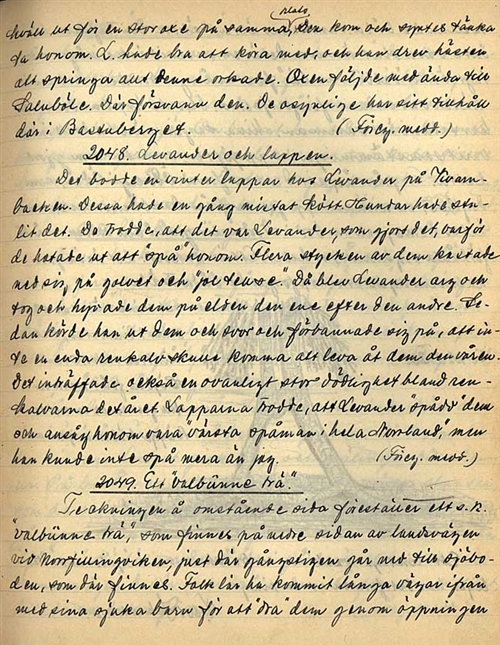 plats
kväll ut för en stor oxe på samma, Den kom och syntes tänka
ta honom. L. hade bra att köra med, och han drev hästen
att springa allt denne orkade. Oxen följde med ända till
Salubäle. Där försvann den. De osynlige har sitt tillhåll
där i Bastuberget. (Föreg. medd.)
2048. Levander och lappen.
Det bodde en vinter lappar hos Levander på Kvarn-
backen. Dessa hade en gång mistat kött. Hundar hade stu-
lit det. De trodde, att det var Levander, som gjort det, varför
de hotade ut att "spå" honom. Flera stycken av dem kastade
ned sig på golvet och "jol teuse". Då blev Levander arg och
tog och hyvade dem på elden den ene efter den andre. Se-
dan körde han ut dem och svor och förbannade sig på, att in-
te en enda renkalv skulle komma att leva åt dem den våren.
Det inträffade också en ovanligt stor dödlighet bland ren-
kalvarna det året. Lapparna trodde, att Levander "spådd" dem
och ansåg honom vara "värsta spåman i hela Norrland, men
han kunde inte spå mera än jag. (Föreg. medd.)
2049. Ett "valbünne trä".
Teckningen å omstående sida föreställer ett s.k.
"valbünne trä", som finnes på nedre sidan av landsvägen
vid Norrfillingviken, just där gångstigen går ned till sjöbo-
den, som där finnes. Folk lär ha kommit långa vägar ifrån
med sina sjuka barn för att "dra" dem genom öppningen